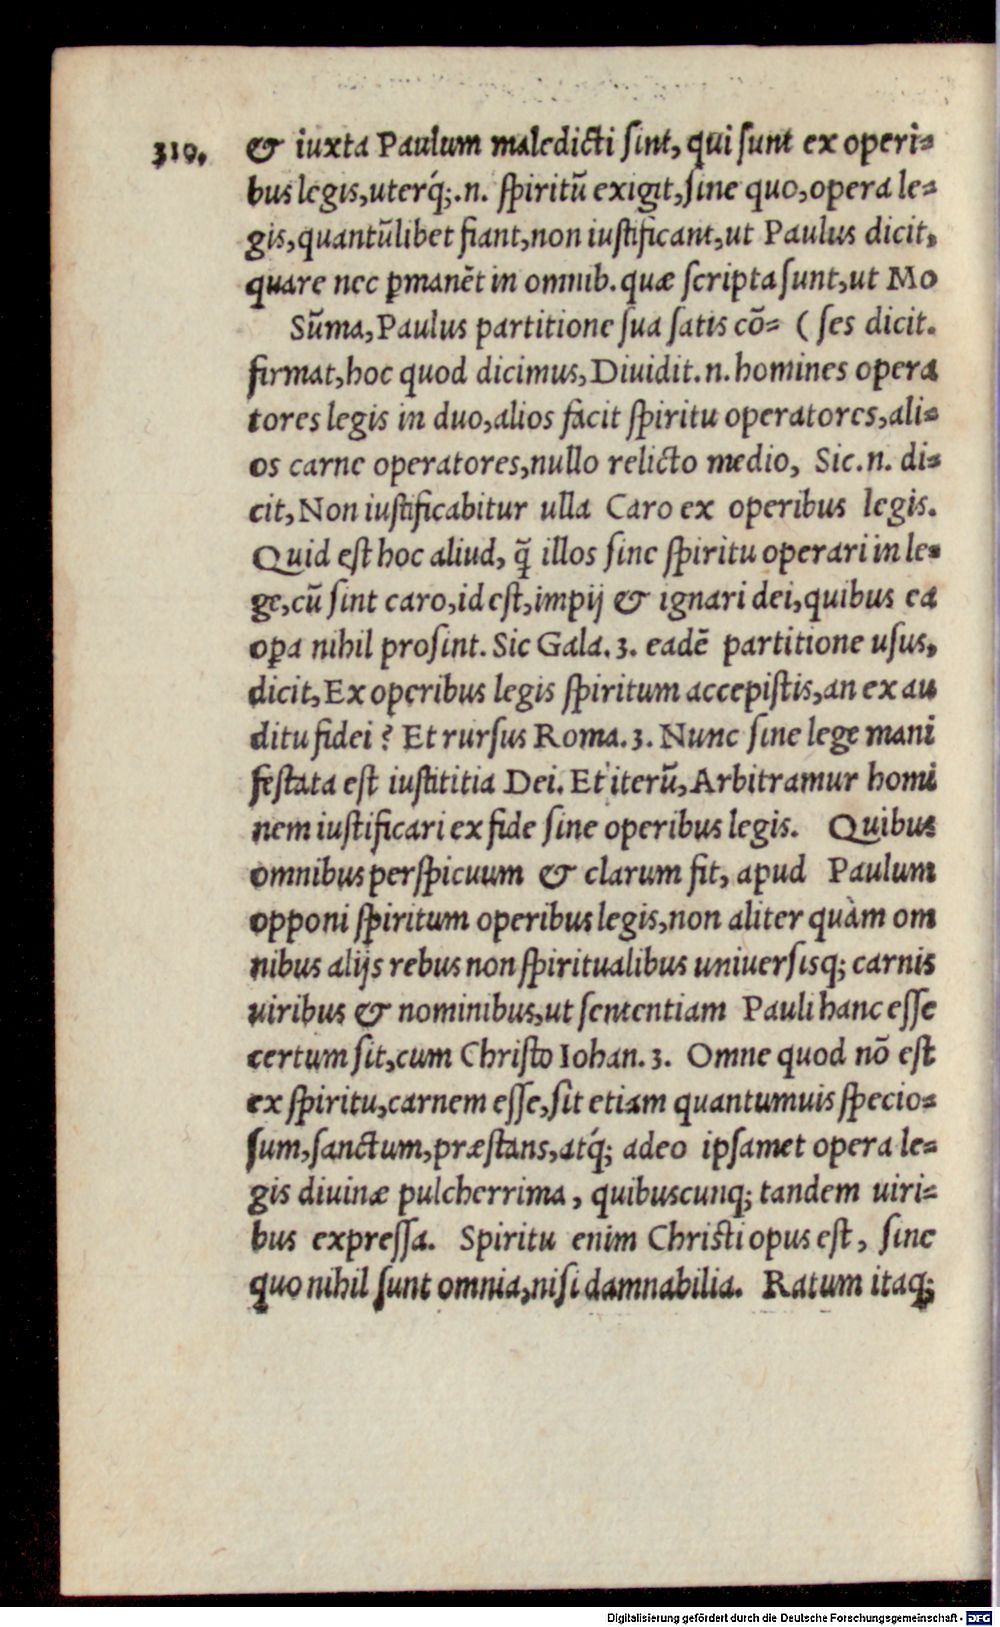 319. & iuxta Paulum maledicti ſint, qui ſunt ex operi=
bus legis, uterq́;.n. ſpiritū exigit, ſine quo, opera le=
gis, quantūlibet fiant, non iuſtificant, ut Paulus dicit,
quare nec ꝑmanēt in omnib. quæ ſcripta ſunt, ut Mo
Sūma, Paulus partitione ſua ſatis cō= ( ſes dicit.
firmat, hoc quod dicimus, Diuidit.n. homines opera
tores legis in duo, alios facit ſpiritu operatores, ali=
os carne operatores, nullo relicto medio, Sic.n. di=
cit, Non iuſtificabitur ulla Caro ex operibus legis.
Quid eſt hoc aliud, q̄ illos ſine ſpiritu operari in le=
ge, cū ſint caro, id eſt, impij & ignari dei, quibus ea
oꝑa nihil proſint. Sic Gala. 3. eadē partitione uſus,
dicit, Ex operibus legis ſpiritum accepiſtis, an ex au
ditu fidei ? Et rurſus Roma. 3. Nunc ſine lege mani
feſtata eſt iuſtititia Dei. Et iterū, Arbitramur homi
nem iuſtificari ex fide ſine operibus legis. Quibus
omnibus perſpicuum & clarum fit, apud Paulum
opponi ſpiritum operibus legis, non aliter quàm om
nibus alijs rebus non ſpiritualibus uniuerſisq; carnis
uiribus & nominibus, ut ſententiam Pauli hanc eſſe
certum ſit, cum Chriſto Iohan. 3. Omne quod nō eſt
ex ſpiritu, carnem eſſe, ſit etiam quantumuis ſpecio=
ſum, ſanctum, præſtans, atq́; adeo ipſamet opera le=
gis diuinæ pulcherrima, quibuscunq; tandem uiri=
bus expreſſa. Spiritu enim Chriſti opus eſt, ſine
quo nihil ſunt omnia, niſi damnabilia. Ratum itaq;
Digitalisierung gefördert durch die Deutsche Forschungsgemeinschaft - DFG